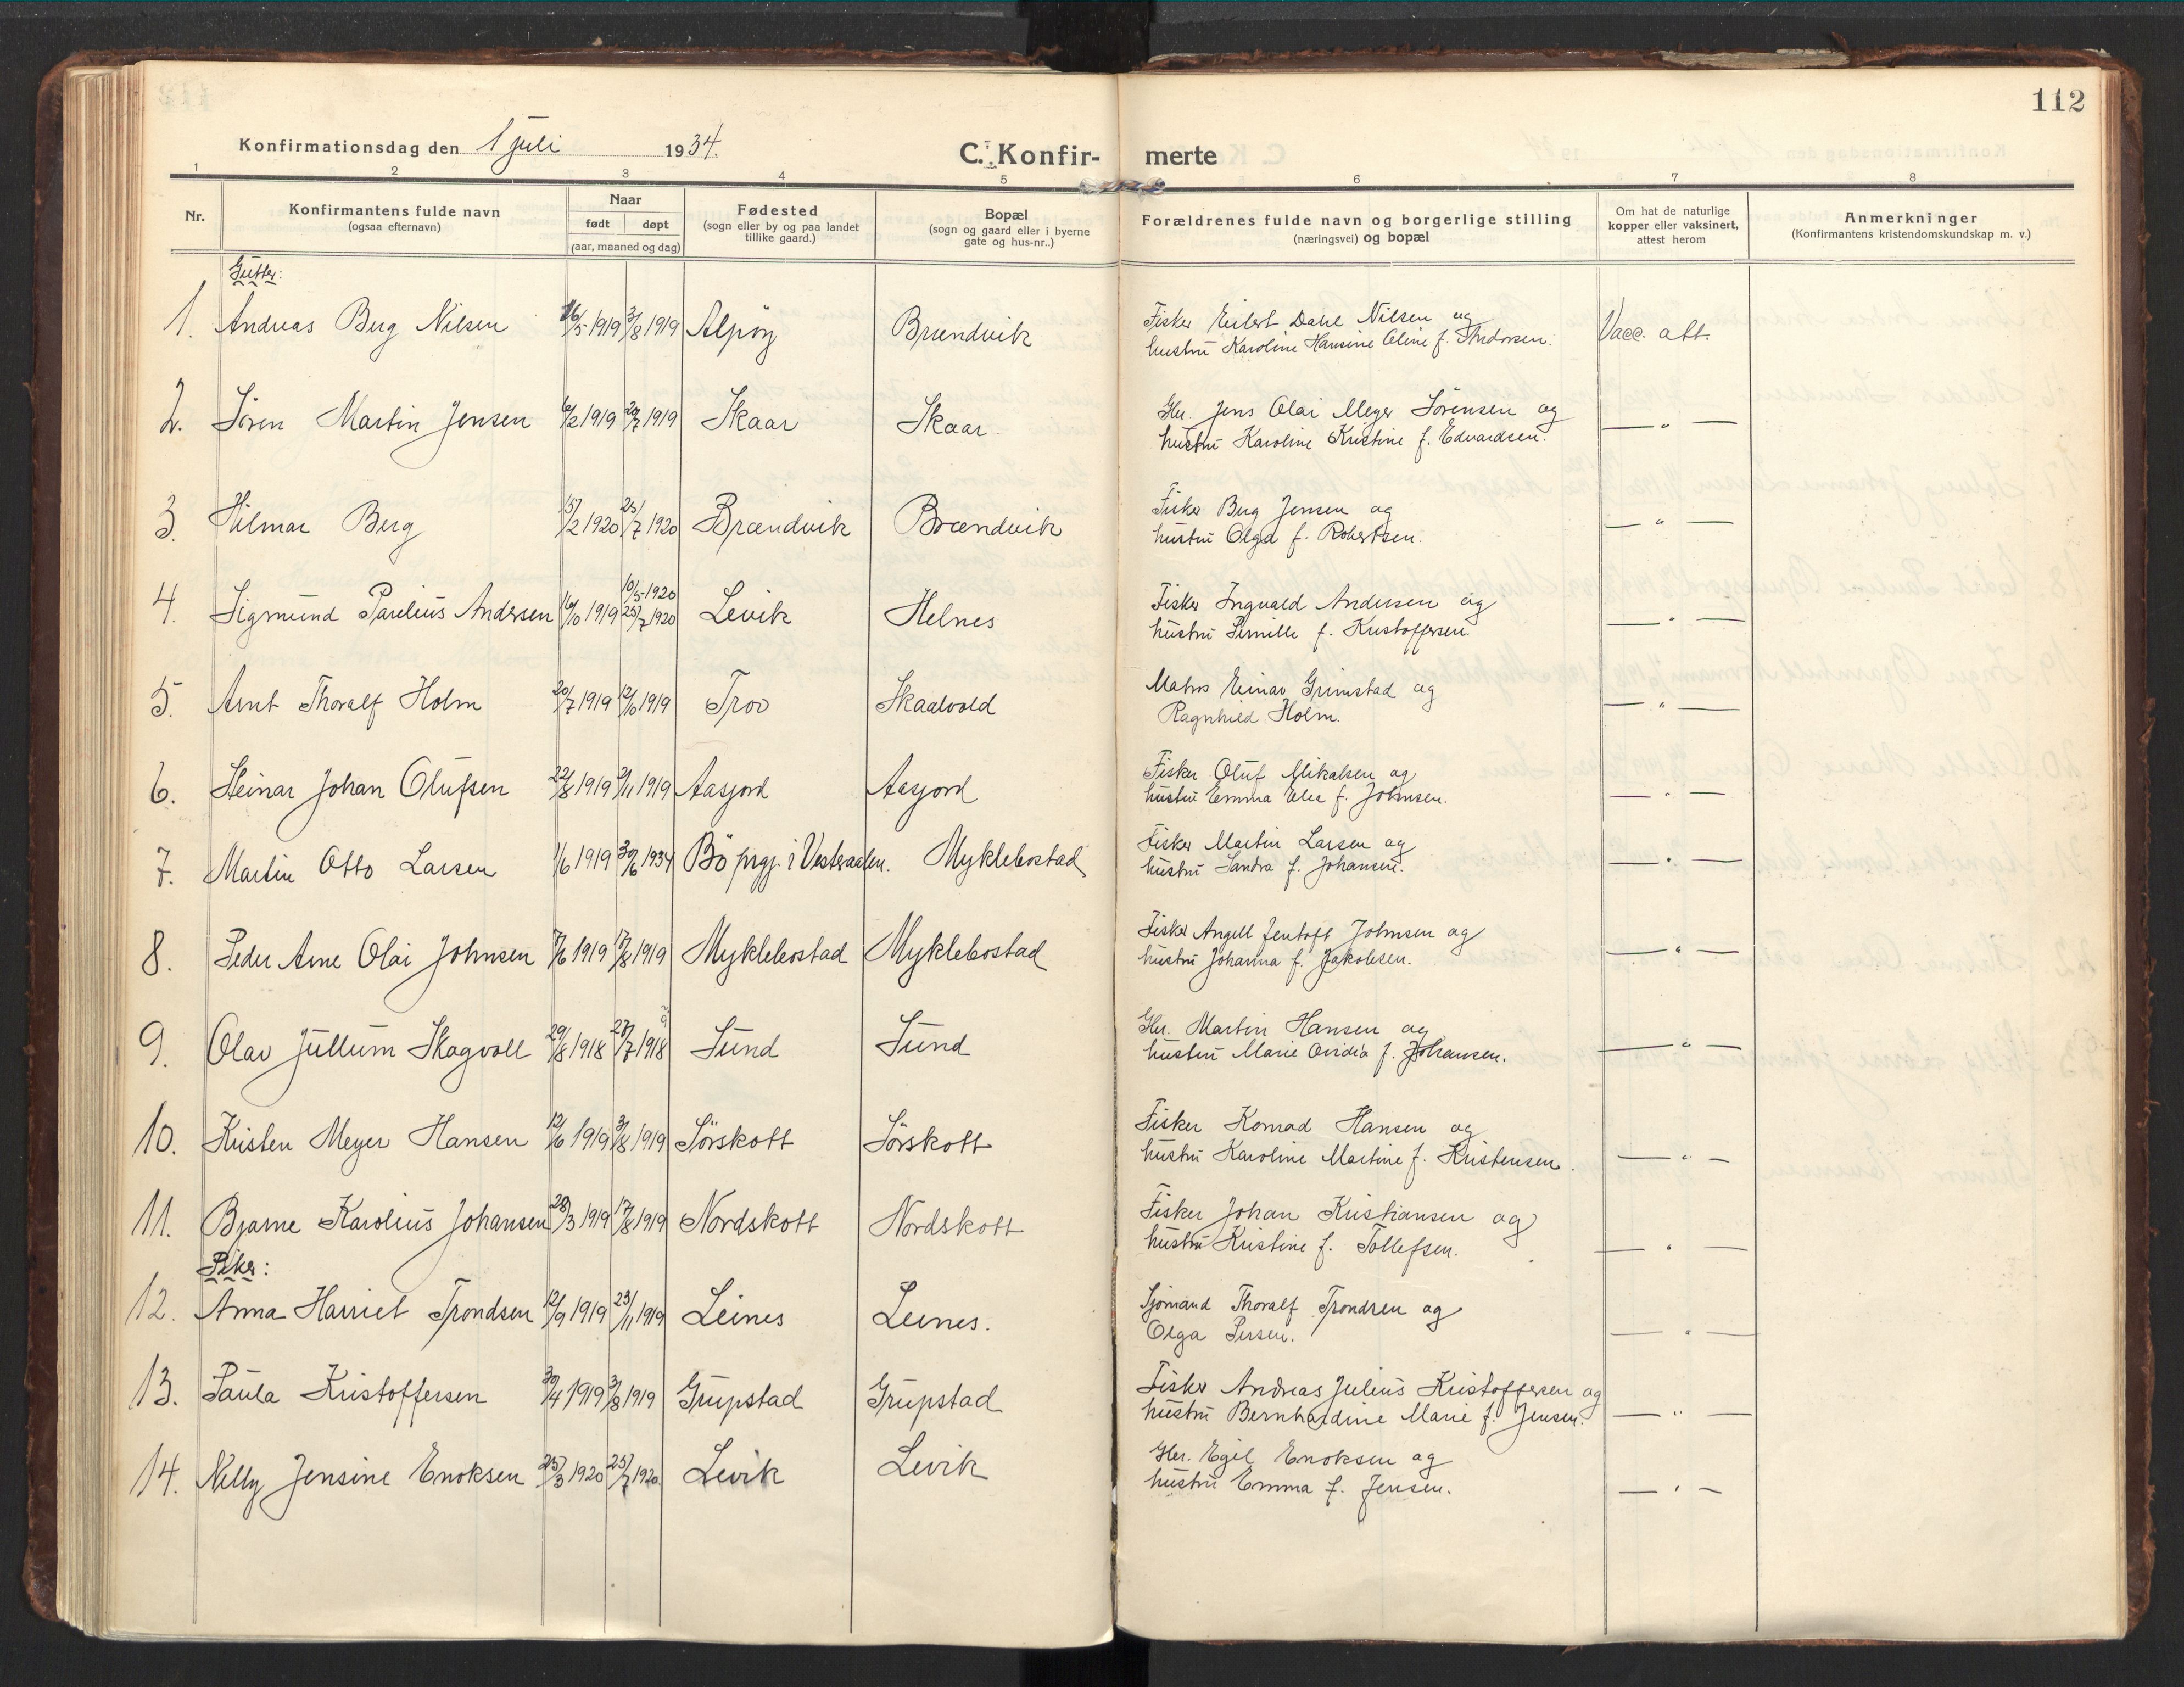 112
Konfirmationsdag den 1 juli 1934.
C. Konfir- merte
1 2 3 4 5 6 7 8
Nr.
Konfirmantens fulde navn
(ogsaa efternavn)
Naar
født døpt
(aar, maaned og dag)
Fødested
(sogn eller by og paa landet
tillike gaard.)
Bopæl
(sogn og gaard eller i byerne
gate og hus-nr..)
Forældrenes fulde navn og borgerlige stilling
(næringsvei) og bopæl
Om hat de naturlige
kopper eller vaksinert,
attest herom
Anmerkninger
(Konfirmantens kristendomskundskap m. v.)
Gutter:
1. Andreas Berg Nilsen 16/5 1919 3/8 1919 Alpöy Brændvik
Fisker Eilert Dahl Nilsen og
hustru Karoline Hansine Oline f. Andorsen. Vacc. att.
2. Sören Martin Jensen 16/2 1919 20/7 1919 Skaar Skaar
Gbr. Jens Olai Meyer Sörensen og
hustru Karoline Kristine f. Edvardsen. — " —
3. Hilmar Berg 15/2 1920 25/7 1920 Brændvik Brændvik
Fisker Berg Jensen og
hustru Olga f. Robertsen. — " —
4. Sigmund Parelius Andersen 16/10 1919 10/5 1920 25/7 1920 Levik Helnes
Fisker Ingvald Andersen og
hustru Pernille f. Kristoffersen. — " —
5. Arnt Thoralf Holm 20/7 1919 12/10 1919 Troo Skaalvold
Matros Einar Grimstad og
Ragnhild Holm. — " —
6. Steinar Johan Olufsen 22/8 1919 2/11 1919 Aasjord Aasjord
Fisker Oluf Mikalsen og
hustru Emma Elea f. Johnsen. — " —
7. Martin Otto Larsen 1/6 1919 30/6 1934 Bö prgj. i Vesteraalen. Myklebostad
Fisker Martin Larsen og
hustru Sandra f. Johansen. — " —
8. Peder Arne Olai Johnsen 7/6 1919 17/8 1919 Myklebostad Myklebostad
Fisker Angell Jentoft Johnsen og
hustru Johanna f. Jakobsen. — " —
9. Olav Jullum Skagvoll 29/8 1918 27/7 1918 9 Sund Sund
Gbr. Martin Hansen og
hustru Marie Ovidia f. Johansen. — " —
10. Kristen Meyer Hansen 12/6 1919 3/8 1919 Sörskott Sörskott
Fisker Konrad Hansen og
hustru Karoline Martine f. Kristensen. — " —
11. Bjarne Karolius Johansen 28/3 1919 17/8 1919 Nordskott Nordskott
Fisker Johan Kristiansen og
hustru Kristine f. Tollefsen. — " —
Piker:
12. Anna Harriet Trondsen 12/9 1919 23/11 1919 Leines Leines.
Sjömand Thoralf Trondsen og
Olga Persen. — " —
13. Paula Kristoffersen 30/4 1919 3/8 1919 Grupstad Grupstad
Fisker Andreas Julius Kristoffersen og
hustru Bernhardine Marie f. Jensen. — " —
14. Nelly Jensine Enoksen 25/3 1920 25/7 1920. Levik Levik
Gbr. Egil Enoksen og
hustru Emma f. Jensen. — " —